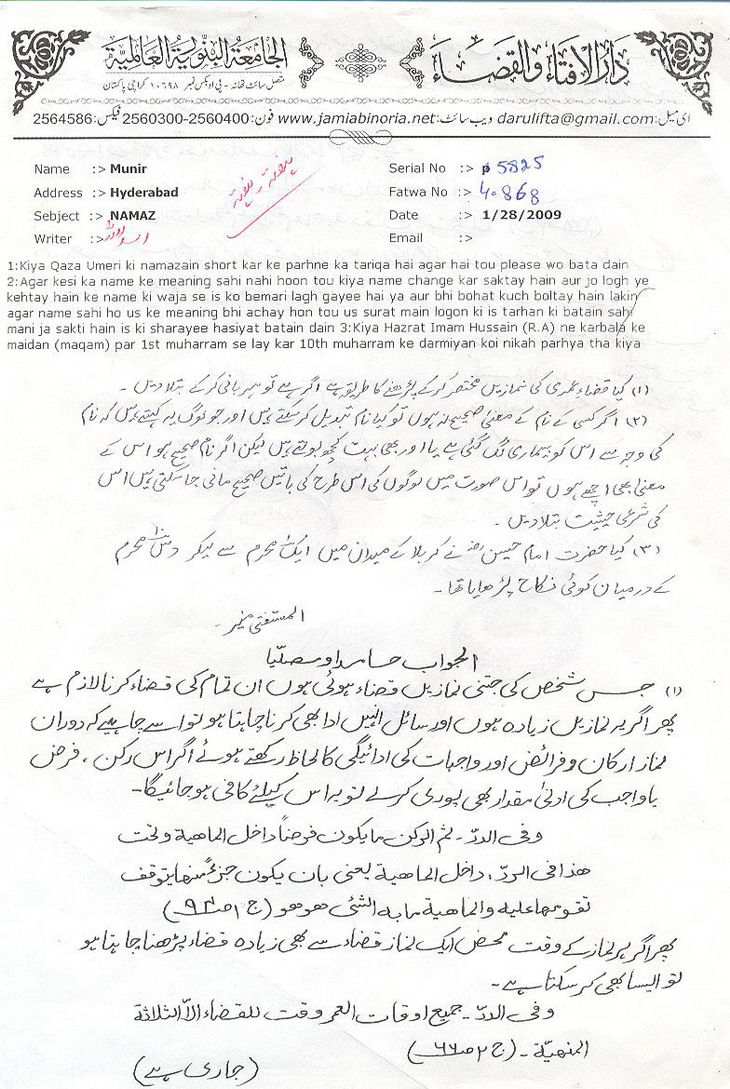 الجامعة البنورية العالمية
دار الافتاء والقضاء
متصل سائٹ تھانہ - پی او بکس نمبر ۱۰۶۹۸ کراچی پاکستان
ای میل: darulifta@gmail.com ویب سائٹ: www.jamiabinoria.net فون: 2560300-2560400 فیکس: 2564586
Name :> Munir
Serial No :> 5825
Address :> Hyderabad
Fatwa No :> 40868
Sebject :> NAMAZ
Date :> 1/28/2009
Writer :>
Email :>
1:Kiya Qaza Umeri ki namazain short kar ke parhne ka tariqa hai agar hai tou please wo bata dain
2:Agar kesi ka name ke meaning sahi nahi hoon tou kiya name change kar saktay hain aur jo logh ye
kehtay hain ke name ki waja se is ko bemari lagh gayee hai ya aur bhi bohat kuch boltay hain lakin
agar name sahi ho us ke meaning bhi achay hon tou us surat main logon ki is tarhan ki batain sahi
mani ja sakti hain is ki sharayee hasiyat batain dain 3:Kiya Hazrat Imam Hussain (R.A) ne karbala ke
maidan (maqam) par 1st muharram se lay kar 10th muharram ke darmiyan koi nikah parhya tha kiya
(۱) کیا قضاء عمری کی نمازیں مختصر کرکے پڑھنے کا طریقہ ہے اگر ہے تو مہربانی کرکے بتلادیں ۔
(۲) اگر کسی کے نام کے معنیٰ صحیح نہ ہوں تو کیا نام تبدیل کرسکتے ہیں اور جو لوگ یہ کہتے ہیں کہ نام
کی وجہ سے اس کو بیماری لگ گئی ہے یا اور بھی بہت کچھ بولتے ہیں لیکن اگر نام صحیح ہو اس کے
معنیٰ بھی اچھے ہوں تو اس صورت میں لوگوں کی اس طرح کی باتیں صحیح مانی جاسکتی ہیں اس
کی شرعی حیثیت بتلادیں ۔
(۳) کیا حضرت امام حسینؓ نے کربلا کے میدان میں ایک محرم سے لیکر دس محرم
کے درمیان کوئی نکاح پڑھایا تھا ۔
المستفتی منیر ۔
الجواب حامدا ومصلیا
(۱) جس شخص کی جتنی نمازیں قضاء ہوئی ہوں ان تمام کی قضاء کرنا لازم ہے
پھر اگر یہ نمازیں زیادہ ہوں اور سائل انہیں ادا بھی کرنا چاہتا ہو تو اسے چاہیے کہ دوران
نماز ارکان وفرائض اور واجبات کی ادائیگی کا لحاظ رکھتے ہوئے اگر اس رکن ، فرض
یا واجب کی ادنیٰ مقدار بھی پوری کرلے تو یہ اس کیلئے کافی ہوجائیگا۔
وفی الدرّ ۔ ثم الرکن مایکون فرضاً داخل الماھیة وتحت
ھذا فی الردّ ، داخل الماھیة یعنی بان یکون جزءً منھا یتوقف
تقومھا علیہ والماھیة مابہ الشئی ھو ھو (ج ۱ صـ ۹۴)
پھر اگر ہر نماز کے وقت محض ایک نماز قضاء سے بھی زیادہ قضاء پڑھنا چاہتا ہو
تو ایسا بھی کرسکتا ہے ۔
وفی الدرّ ۔ جمیع اوقات العمر وقت للقضاء الاّ الثلاثة
المنھیّة ۔ (ج ۲ صـ ۶۶)
(جاری ہے)